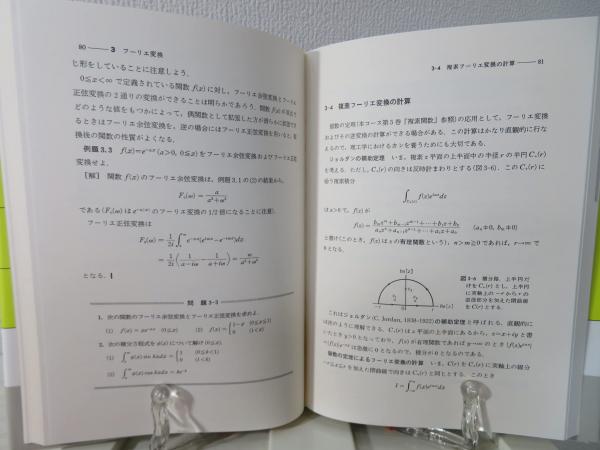 80 —— 3 フーリエ変換
ヒ形をしていることに注意しよう.
0≦x<∞ で定義されている関数 f(x) に対し, フーリエ余弦変換とフーリエ
正弦変換の2通りの変換ができることは明らかであろう. 関数 f(x) が原点で
どのような値をもつかによって, 偶関数として拡張した方が滑らかに拡張で
きるときはフーリエ余弦変換を, 逆の場合にはフーリエ正弦変換を用いると, 変
換後の関数の性質がよくなる.
例題 3.3 f(x)=e^{-ax} (a>0, 0≦x) をフーリエ余弦変換およびフーリエ正弦
変換せよ.
[解] 関数 f(x) のフーリエ余弦変換は, 例題 3.1 の (2) の結果から,
F_c(ω) = a/(a²+ω²)
である (F_c(ω) は e^{-a|x|} のフーリエ変換の 1/2 倍になることに注意).
フーリエ正弦変換は
F_s(ω) = 1/2i ∫_0^∞ e^{-ax}(e^{iωx}-e^{-iωx})dx
= 1/2i (1/(a-iω) - 1/(a+iω)) = ω/(a²+ω²)
となる.
問題 3-3
1. 次の関数のフーリエ余弦変換とフーリエ正弦変換を求めよ.
(1) f(x)=xe^{-ax} (0≦x) (2) f(x)={1-x (0≦x≦1) 0 (1<x)
2. 次の積分方程式を φ(x) について解け (0≦x).
3-4 複素フーリエ変換の計算 —— 81
3-4 複素フーリエ変換の計算
留数の定理(本コース第5巻『複素関数』参照)の応用として, フーリエ変換
およびその逆変換の計算ができる場合がある. この計算はかなり直観的に行な
えるので, 理工学におけるカンを養うためにも大切である.
ジョルダンの補助定理 いま, 複素 z 平面の上半面中の半径 r の半円 C_+(r)
を考える. ただし, C_+(r) の向きは反時計まわりとする(図 3-6). この C_+(r) に
沿う複素積分
∫_{C_+(r)} f(z)e^{iωz}dz
は ω>0 で, f(z) が
と書け(このとき, f(z) は z の有理関数という), n>m≧0 であれば, r→∞ で
0 となる.
Im[z]
Re[z]
図 3-6 積分路. 上半円だ
けを C_+(r) とし, 上半円
に実軸上の -r から r の
直径部分を加えた閉曲線
を C(r) とする.
これはジョルダン (C. Jordan, 1838-1922) の補助定理と呼ばれる. 直観的に
は次のように理解できる. C_+(r) は z 平面の上半面にあるから, z=x+iy と書
いたとき y>0 となっており, f(z) が有理関数であれば y→∞ のとき |f(z)e^{iωz}|
=|f(z)|e^{-ωy} は急激に 0 となるので, 積分が 0 となるのである.
留数の定理によるフーリエ変換の計算 いま, C(r) を C_+(r) に実軸上の線分
-r≦x≦r を加えた閉曲線で向きは C_+(r) と同じとする. このとき